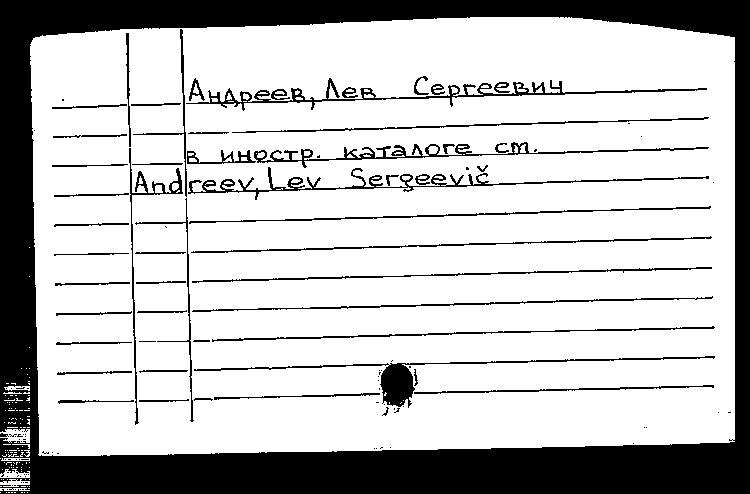 Андреев, Лев Сергеевич
в иностр. каталоге см.
Andreev, Lev Sergeevič